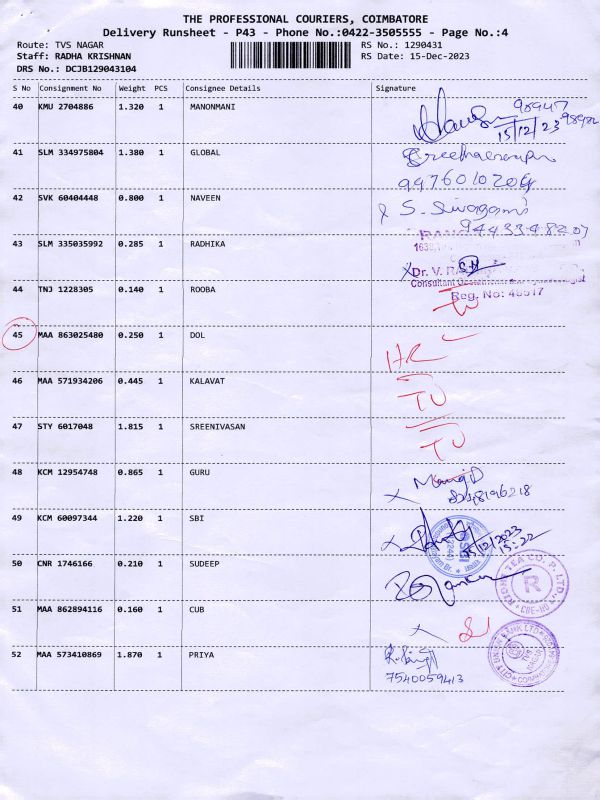 THE PROFESSIONAL COURIERS, COIMBATORE
Delivery Runsheet - P43 - Phone No.:0422-3505555 - Page No.:4
Route: TVS NAGAR RS No.: 1290431
Staff: RADHA KRISHNAN RS Date: 15-Dec-2023
DRS No.: DCJB129043104
S No Consignment No Weight PCS Consignee Details Signature
40 KMU 2704886 1.320 1 MANONMANI
15/12/23
41 SLM 334975804 1.380 1 GLOBAL
9976010204
42 SVK 60404448 0.800 1 NAVEEN S. Sivagami
9443348207
43 SLM 335035992 0.285 1 RADHIKA
Dr. V.
44 TNJ 1228305 0.140 1 ROOBA
Reg. No: 48517
45 MAA 863025480 0.250 1 DOL
46 MAA 571934206 0.445 1 KALAVAT TU
47 STY 6017048 1.815 1 SREENIVASAN TU
48 KCM 12954748 0.865 1 GURU
49 KCM 60097344 1.220 1 SBI
15/12/2023
15:22
50 CNR 1746166 0.210 1 SUDEEP
TEA CO. P. LTD.
R
CBE-
51 MAA 862894116 0.160 1 CUB
52 MAA 573410869 1.870 1 PRIYA
7540059413